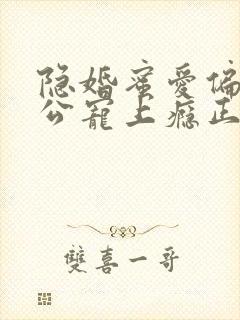 隐婚蜜爱偏
公宠上瘾正
雙喜一哥